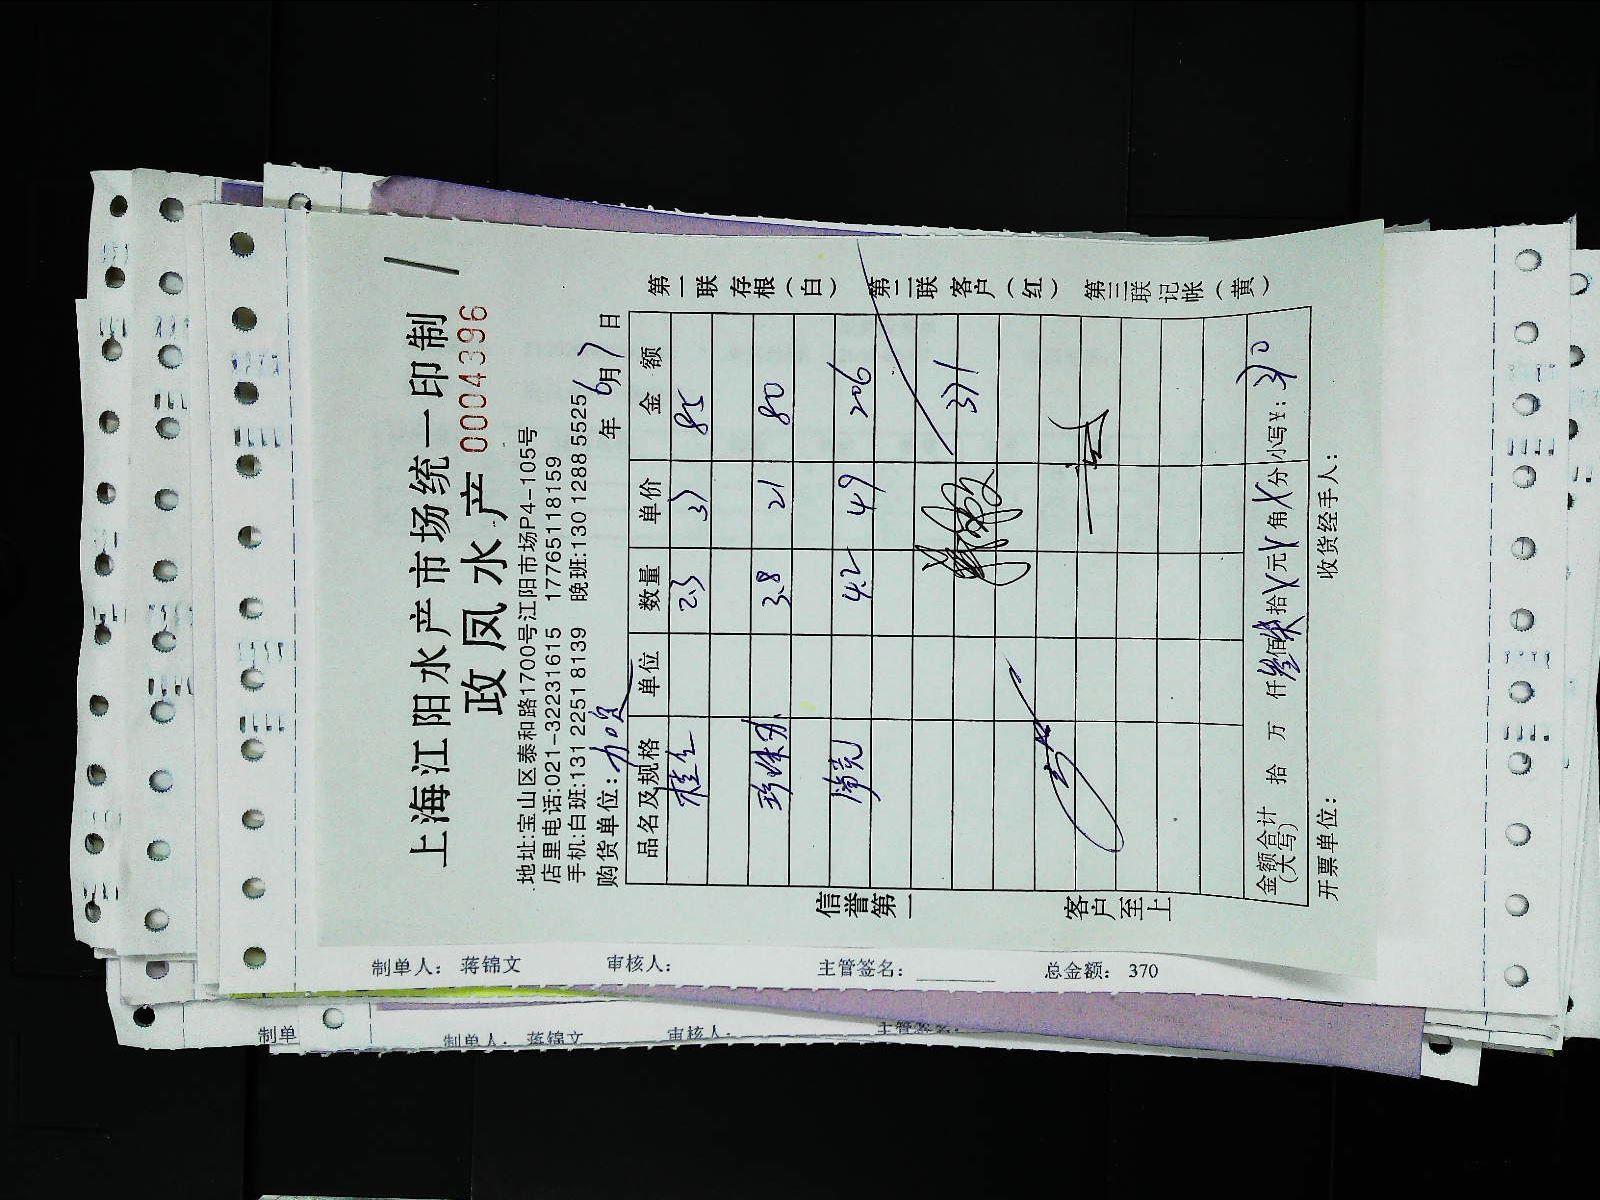 上海江阳水产市场统一印制
政凤水产 0004396
地址:宝山区泰和路1700号江阳市场P4-105号
店里电话:021-32231615 17765118159
手机:白班:131 2251 8139 晚班:130 1288 5525
购货单位: 年 6月 7 日
品名及规格 单位 数量 单价 金额
2.3 37 85
3.8 21 80
4.2 49 206
371
金额合计(大写) 拾 万 仟 叁佰 柒拾 元 角 分 小写¥: 370
开票单位: 收货经手人:
信誉第一 客户至上
第一联 存根(白) 第二联 客户(红) 第三联 记帐(黄)
制单人: 蒋锦文 审核人: 主管签名: 总金额: 370
制单
制单人: 蒋锦文 审核人: 主管签名: